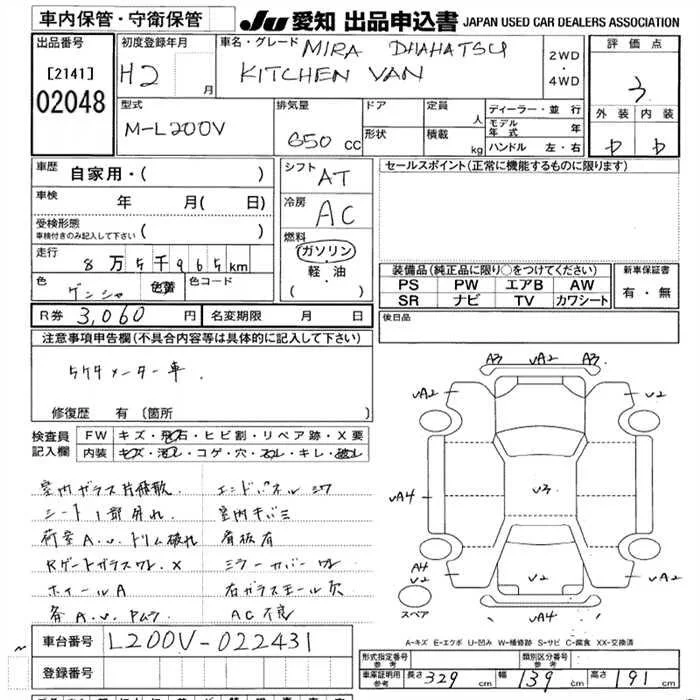 車内保管・守衛保管
JU 愛知 出品申込書 JAPAN USED CAR DEALERS ASSOCIATION
出品番号
[2141]
02048
初度登録年月
H2 月
車名・グレード MIRA DHAHATSU
KITCHEN VAN
2WD
・
4WD
評価点
3
外装 内装
D D
型式
M-L200V
排気量
650 cc
ドア
形状
定員 人
積載 kg
ディーラー・並行
モデル年式 年
ハンドル 左・右
車歴 自家用・( )
車検 年 月( 日)
受検形態
車検付きのみ記入して下さい ( )
走行 8万5千965km
色
色替
色コード
シフト AT
冷房 AC
燃料
ガソリン
軽・油
( ・ )
セールスポイント(正常に機能するものに限ります)
装備品(純正品に限り○をつけてください)
PS PW エアB AW
SR ナビ TV カワシート
新車保証書
有・無
R券 3,060 円 名変期限 月 日
後日品
注意事項申告欄(不具合内容等は具体的に記入して下さい)
5ケタメーター車.
修復歴 有 (箇所 )
検査員
記入欄
FW キズ・飛石・ヒビ割・リペア跡・X要
内装 キズ・汚レ・コゲ・穴・スレ・キレ・破レ
A3 vA2 A3
vA2 v2
vA4 v3
A4
v2 v2 v2
vA4
スペア
シート1部外れ.
Rゲートガラスワレ.X
ホイールA
室内キバミ
看板有
ミラーカバーワレ
右ガラスモール欠
AC不良
A-キズ E-エクボ U-凹み W-補修跡 S-サビ C-腐食 XX-交換済
車台番号 L200V-022431
登録番号
形式指定番号
参考
類別区分番号
参考
車庫証明用
参考
長さ 329 cm 幅 139 cm 高さ 191 cm